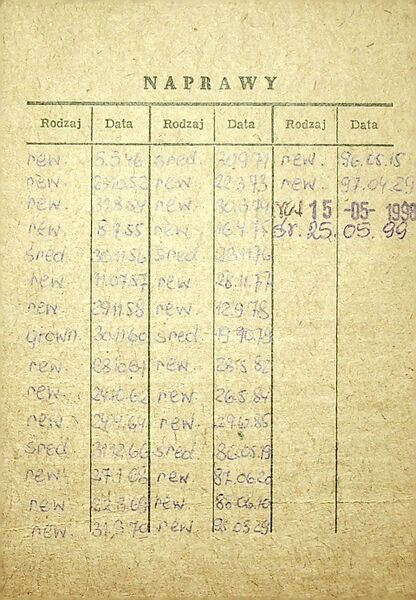 NAPRAWY
Rodzaj Data Rodzaj Data Rodzaj Data
rew. 5.5.46 śred. 30.9.71 rew. 96.05.15
rew. 27.10.52 rew. 22.3.73 rew. 97.04.29
rew. 31.8.54 rew. 30.3.74 rew 15-05-1998
rew. 8.7.55 rew. 16.4.75 śr. 25.05.99
śred. 30.11.56 śred. 23.11.76
rew. 11.07.57 rew. 28.11.77
rew. 29.11.58 rew. 12.9.78
główn. 30.11.60 śred. 19.10.79
rew. 28.10.61 rew. 28.5.82
rew. 24.10.62 rew. 26.5.84
rew. 29.9.64 rew. 29.6.85
śred. 31.12.66 śred. 86.05.19
rew. 27.1.68 rew. 87.06.20
rew. 22.3.69 rew. 88.06.10
rew. 31.3.70 rew.